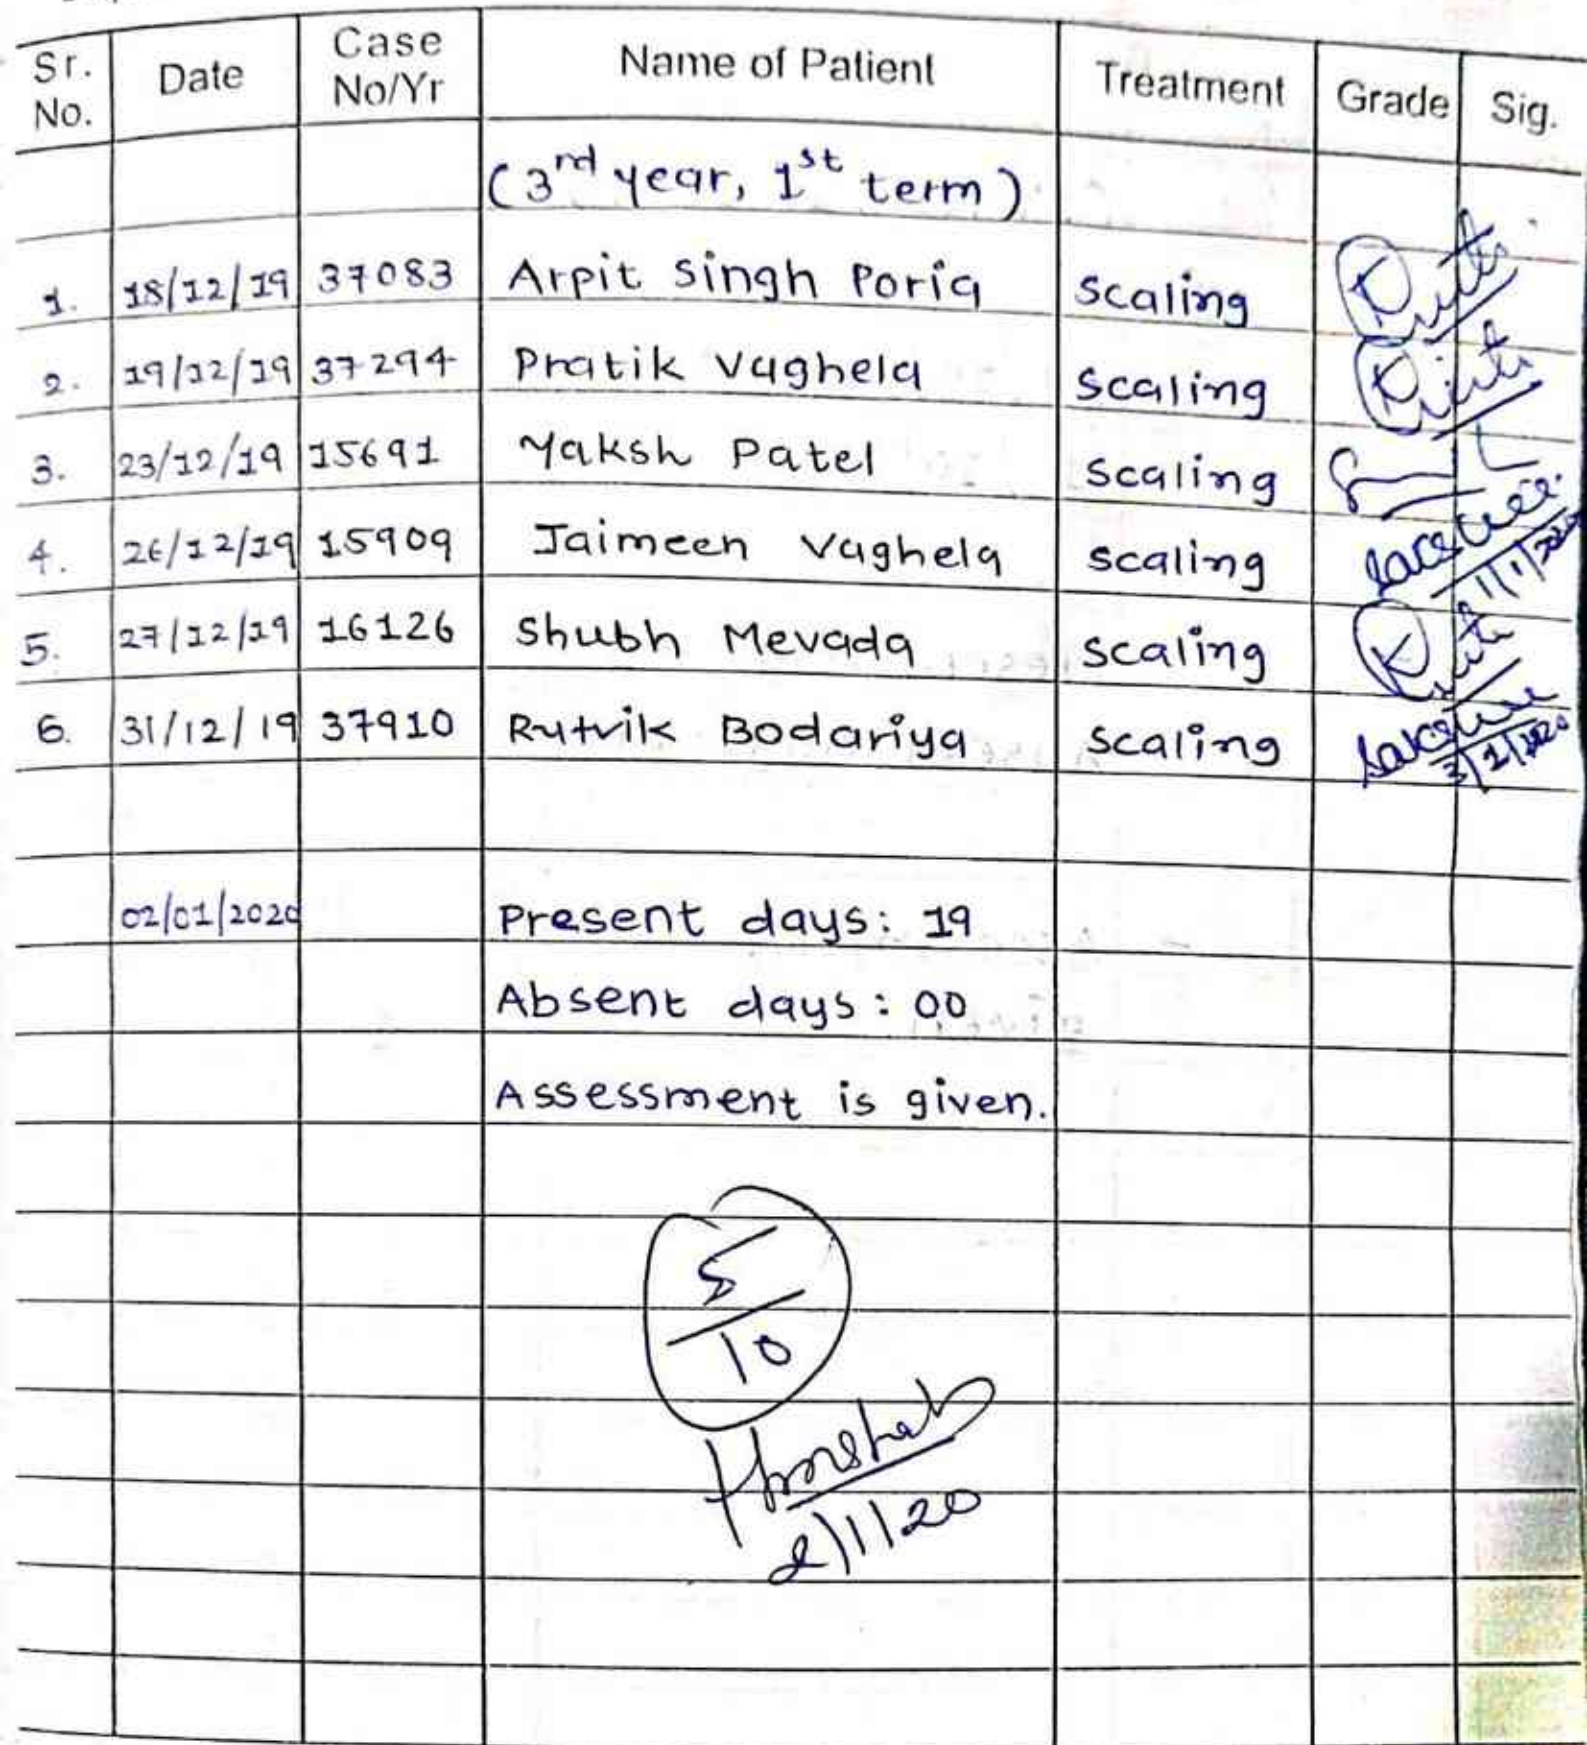 Sr. No. Date Case No/Yr Name of Patient Treatment Grade Sig.
(3rd year, 1st term)
1. 18/12/19 37083 Arpit Singh Poria Scaling
2. 19/12/19 37294 Pratik Vaghela Scaling
3. 23/12/19 15691 Yaksh Patel Scaling
4. 26/12/19 15909 Jaimeen Vaghela scaling 1/1/2020
5. 27/12/19 16126 Shubh Mevada scaling
6. 31/12/19 37910 Rutvik Bodariya scaling
02/01/2020 Present days: 19
Absent days: 00
Assessment is given.
5
10
2/1/20